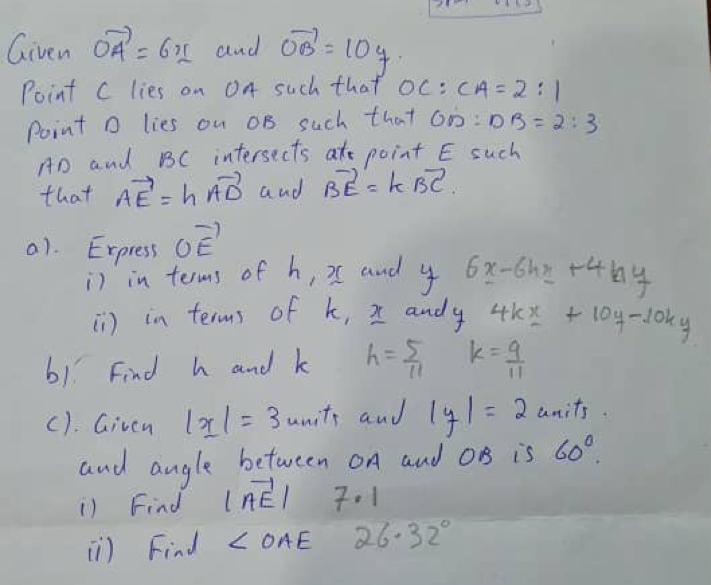 Given OA = 6x and OB = 10y.
Point C lies on OA such that OC : CA = 2 : 1
Point D lies on OB such that OD : DB = 2 : 3
AD and BC intersects at point E such
that AE = h AD and BE = k BC.
a). Express OE
i) in terms of h, x and y 6x-6hx +4hy
ii) in terms of k, x and y 4kx + 10y-10ky
b). Find h and k h = 5/11 k = 9/11
c). Given |x| = 3 units and |y| = 2 units.
and angle between OA and OB is 60°.
i) Find |AE| 7.1
ii) Find < OAE 26.32°